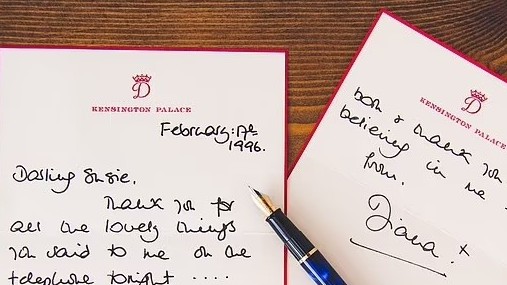 D
KENSINGTON PALACE
February: 17th
1996.
Darling Susie,
Thank you for
all the lovely things
you said to me on the
telephone tonight ....
D
KENSINGTON PALACE
thank you
believing in me
from.
Diana. x